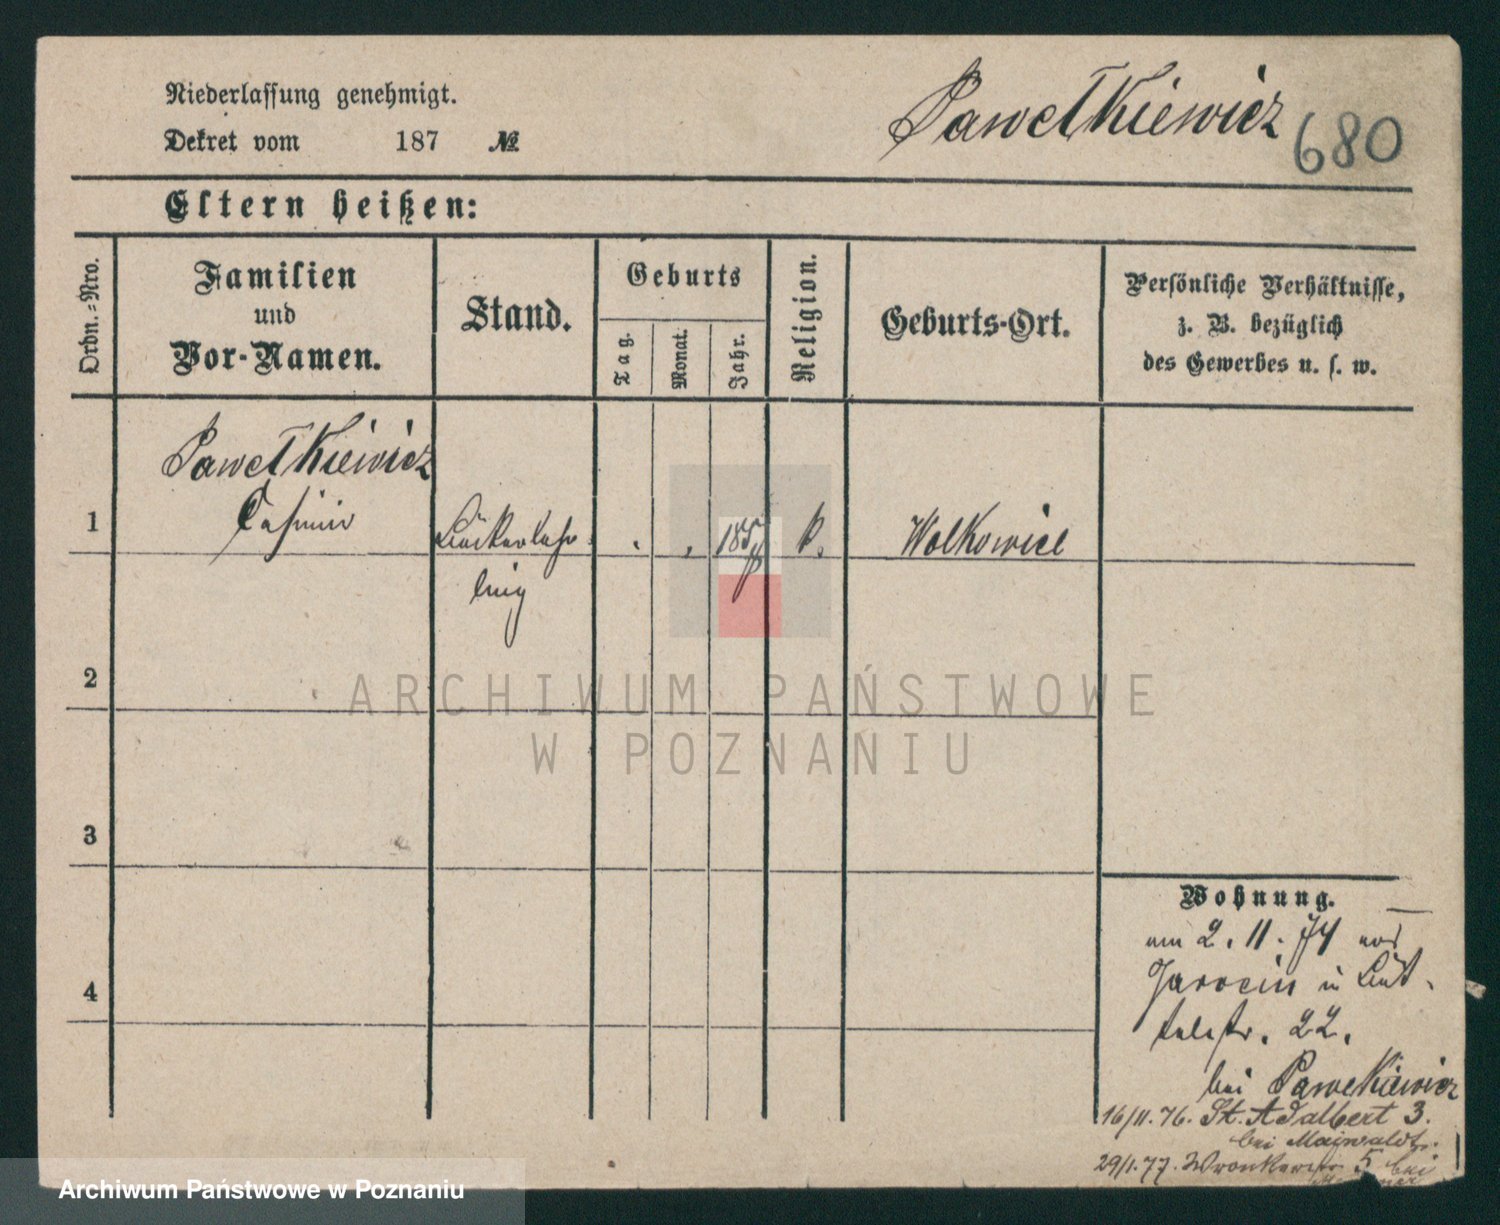 Niederlassung genehmigt.
Dekret vom 187 №
Pawełkiewicz 680
Eltern heißen:
Ordn.-Nro.
Familien
und
Vor-Namen.
Stand.
Geburts
Tag.
Monat.
Jahr.
Religion.
Geburts-Ort.
Persönliche Verhältnisse,
z. B. bezüglich
des Gewerbes u. s. w.
Pawełkiewicz
Casimir
1
Bäckerlehr
ling
k.
Wolkowice
2
3
4
Wohnung.
am 2. 11. 74 aus
Jarocin in Büt-
telstr. 22.
bei Pawelkiewicz
16/11. 76. St. Adalbert 3.
bei Maywaldt.
29/1. 77. Wronkerstr 5 bei
ARCHIWUM PAŃSTWOWE
W POZNANIU
Archiwum Państwowe w Poznaniu